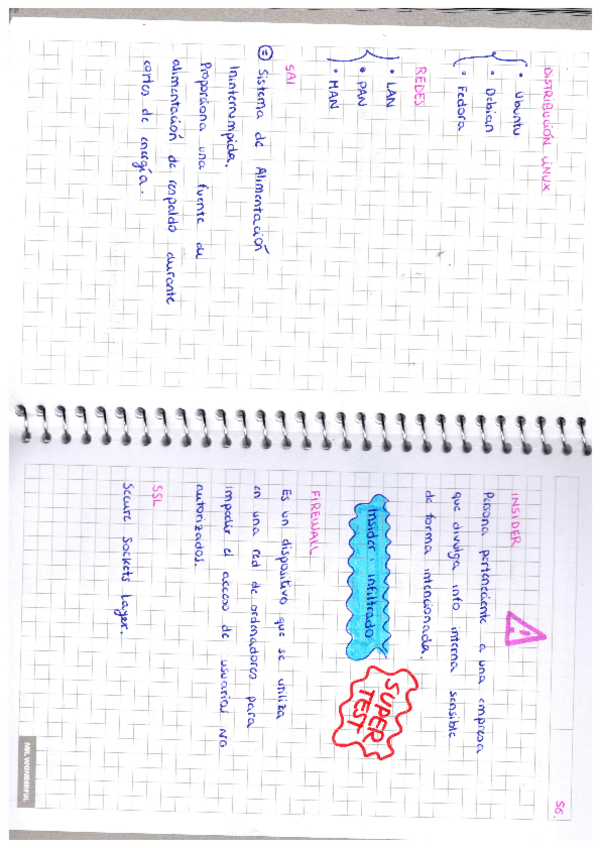 DISTRIBUCIÓN LINUX
• Ubuntu
• Debian
• Fedora
REDES
• LAN
• PAN
• MAN
SAI
Sistema de Alimentación
Ininterrumpida.
Proporciona una fuente de
alimentación de respaldo durante
cortes de energía.
56.
INSIDER
Persona perteneciente a una empresa
que divulga info interna sensible
de forma intencionada.
Insider: infiltrado
SUPER
TEST
FIREWALL
Es un dispositivo que se utiliza
en una red de ordenadores para
impedir el acceso de usuarios NO
autorizados.
SSL
Secure Sockets Layer.
MR. WONDERFUL